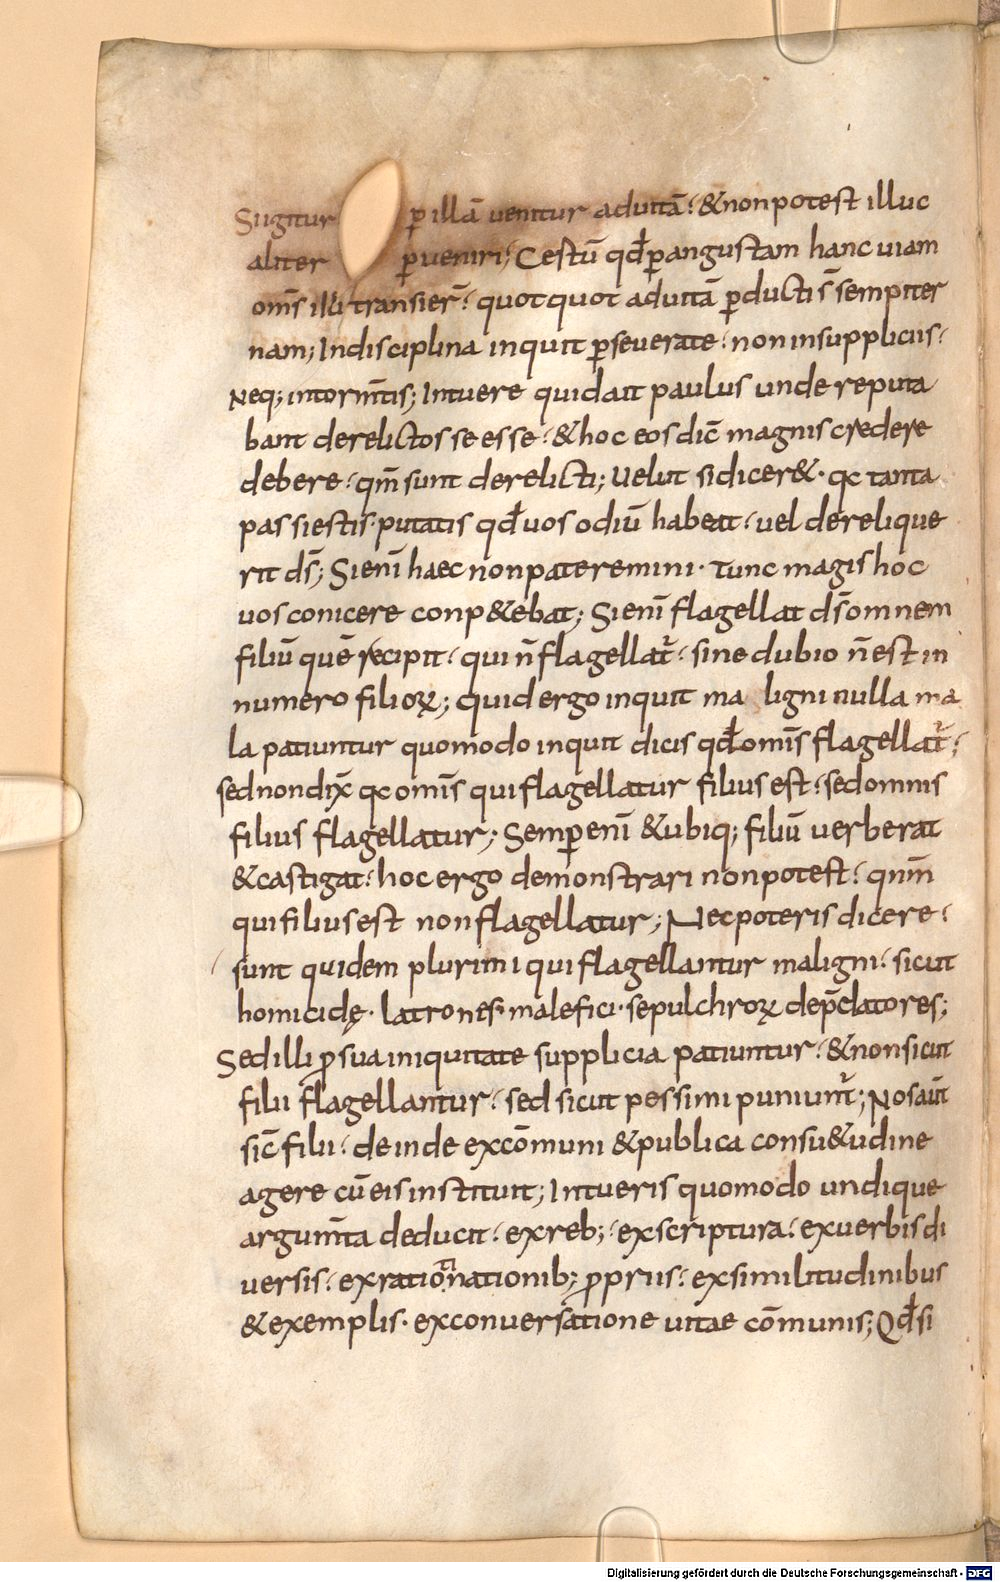 Siigitur ꝑ illā uenitur aduitā: & nonpotest illuc
aliter ꝑueniri; Certū qđ ꝑangustam hanc uiam
om̄s illi transier̄: quotquot aduitā ꝑducti s̄ sempiter
nam; Indisciplina inquit ꝑseuerate: non insuppliciis:
Neq; intorm̄tis; Intuere quidait paulus unde reputa
bant derelictos se esse: & hoc eos dic̄ magnis credere
debere: qm̄ sunt derelicti; Uelut si dicer&· qc tanta
passiestis· putatis qđ uos odiū habeat: uel derelique
rit ds̄; Sieni haec nonpateremini· tunc magis hoc
uos conicere conp&ebat; Sieni flagellat ds̄ omnem
filiū quē recipit: qui n̄ flagellat̄: sine dubio n̄ est in
numero filioꝝ; Quid ergo inquit maligni nulla ma
la patiuntur quomodo inquit dicis qđ om̄s flagellat̄:
sed non dix̄ qc om̄s qui flagellatur filius est: sed omnis
filius flagellatur; Semꝑ enī & ubiq; filiū uerberat
& castigat: hoc ergo demonstrari non potest: qm̄
qui filius est non flagellatur; Nec poteris dicere:
sunt quidem plurimi qui flagellantur maligni: sicut
homicidę· latrones· malefici· sepulchroꝝ dep̄clatores;
Sed illi ꝓ sua iniquitate supplicia patiuntur: & non sicut
filii flagellantur: sed sicut pessimi puniunt̄; Nos aūt
sic̄ filii: deinde excōmuni & publica consu&udine
agere cū eis instituit; Intueris quomodo undique
argum̄ta deducit: ex reb;: ex scriptura: ex uerbis di
uersis: ex ratiotinationib; ꝓpriis: ex similitudinibus
& exemplis· ex conuersatione uitae cōmunis; Qđ si
Digitalisierung gefördert durch die Deutsche Forschungsgemeinschaft - DFG